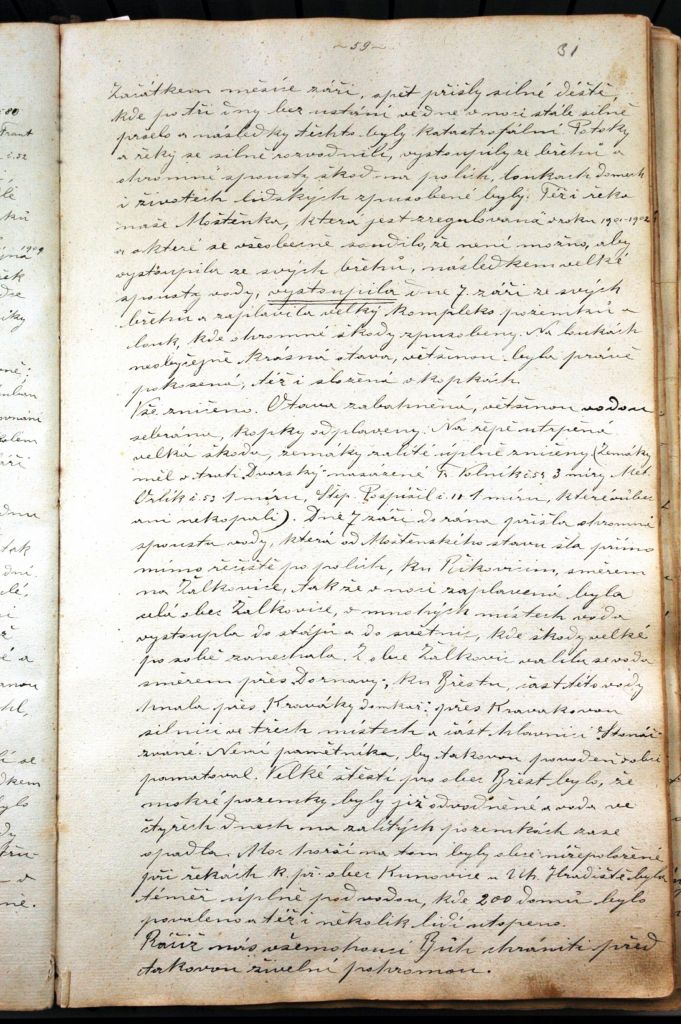 ~59~ 31
Začátkem měsíce září, opět přišly silné deště,
kde po tři dny bez ustání ve dne v noci stále silně
pršelo a následky těchto byly katastrofální. Potoky
a řeky se silně rozvodnili, vystoupily ze břehů a
ohromné spousty škod na polích, loukách domech
i životech lidských způsobené byly. Též i řeka
naše Moštěnka, která jest zregulovaná v roku 1901-1902
a o které se všeobecně soudilo, že není možno, aby
vystoupila ze svých břehů, následkem velké
spousty vody, vystoupila dne 7 září ze svých
břehů a zaplavila velký kompleks pozemků a
louk, kde ohromné škody způsobeny. Na loukách
neobyčejně krásná otava, většinou byla právě
pokosená, též i složená v kopkách.
Vše zničeno. Otava zabahněná, většinou vodou
sebrána, kopky odplaveny. Na řepě utrpěna
velká škoda, zemáky zalité úplně zničeny (Zemáky
měl v trati Dvorský nasazené Fr. Volník č 52 3 míry, Met.
Orlík č 53 1 míru, Štěp. Pospíšil č. 11 1 míru, které vůbec
ani nekopali). Dne 7 září do rána přišla ohromná
spousta vody, která od Moštěnského stavu šla přímo
mimo řečiště po polích, ku Říkovicím, směrem
na Žalkovice, takže v noci zaplavena byla
celá obec Žalkovice, v mnohých místech voda
vystoupla do stájů a do světnic, kde škody velké
po sobě zanechala. Z obce Žalkovic valila se voda
směrem přes Dornavy, ku Břestu, část této vody
hnala přes Kraváky domkař. přes Kravákovou
silnici ve třech místech a část hlavnicí
zvané. Není pamětníka, by takovou povodeň v obci
pamatoval. Velké štěstí pro obec Břest bylo, že
mokré pozemky byly již odvodněné a voda ve
čtyřech dnech na zalitých pozemkách zase
opadla. Moc horší na tom byly obce nížepoložené
při řekách k. př. obec Kunovice u Uh. Hradiště byla
téměř úplně pod vodou, kde 200 domů bylo
povaleno a též i několik lidí utopeno.
Račiž nás všemohoucí Bůh chrániti před
takovou živelní pohromou.